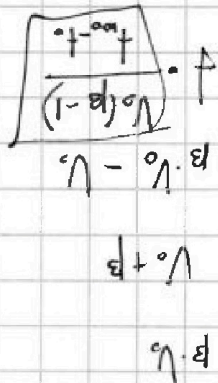 β · V₀
V₀ + β
β · V₀ − V₀
V₀(β − 1)
t₁₀₀ − t₀